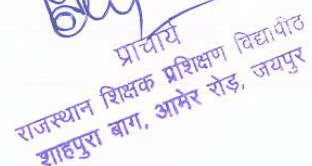 प्राचार्य
राजस्थान शिक्षक प्रशिक्षण विद्यापीठ
शाहपुरा बाग, आमेर रोड़, जयपुर